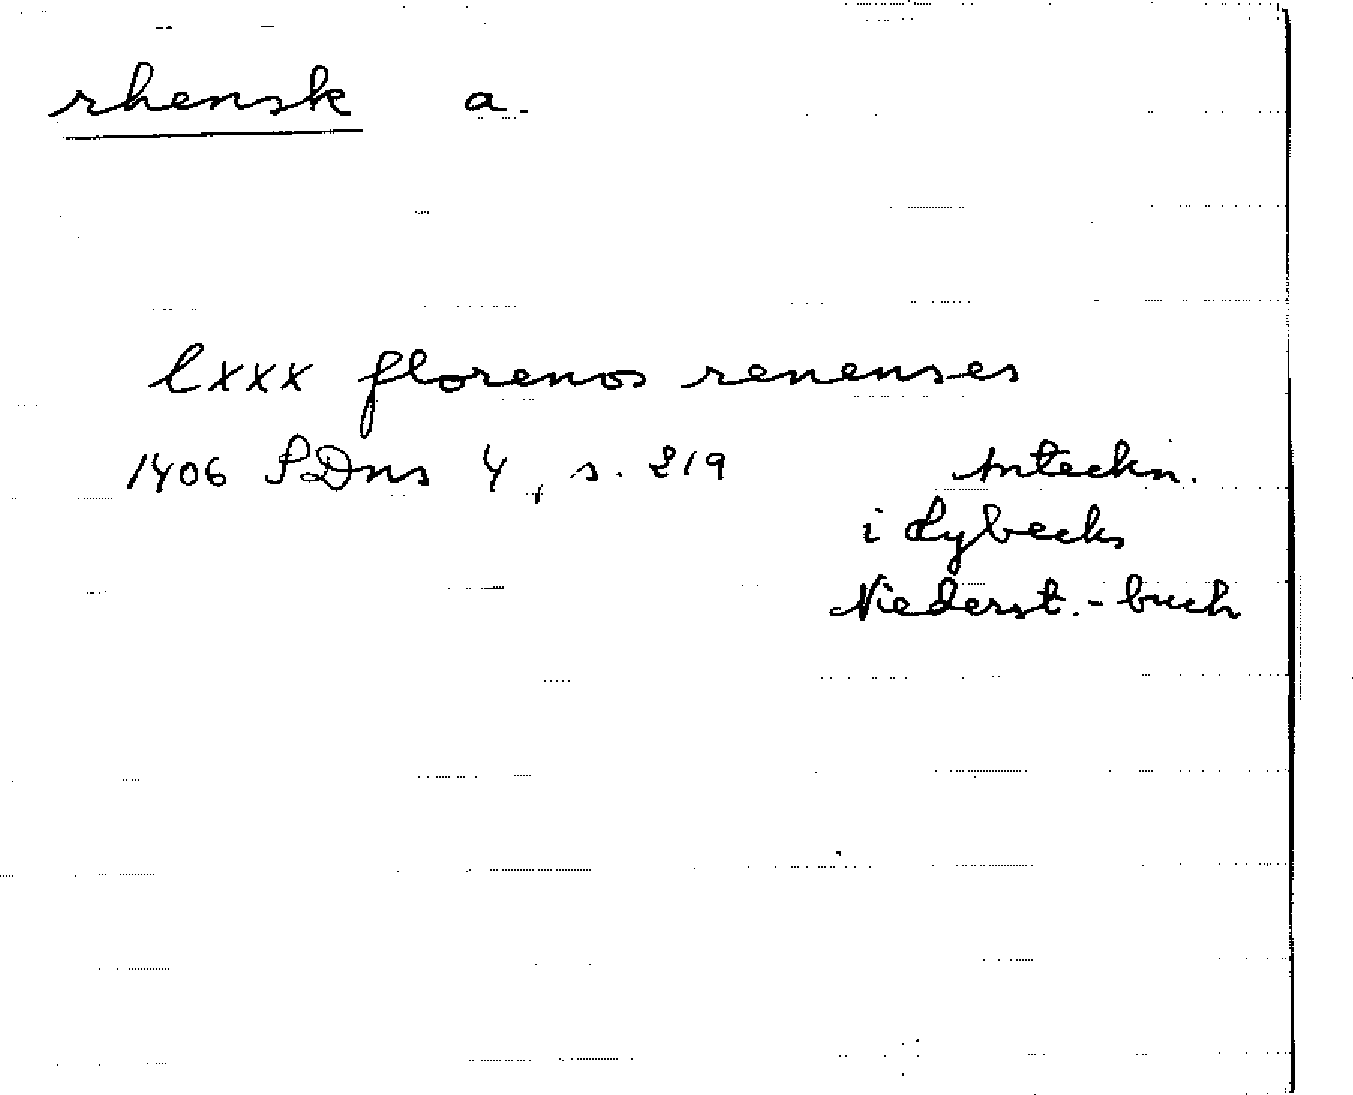 rhensk a.
lxxx florenos renenses
1406 SDns 4, s. 219 Anteckn.
i Lybecks
Niederst.-buch